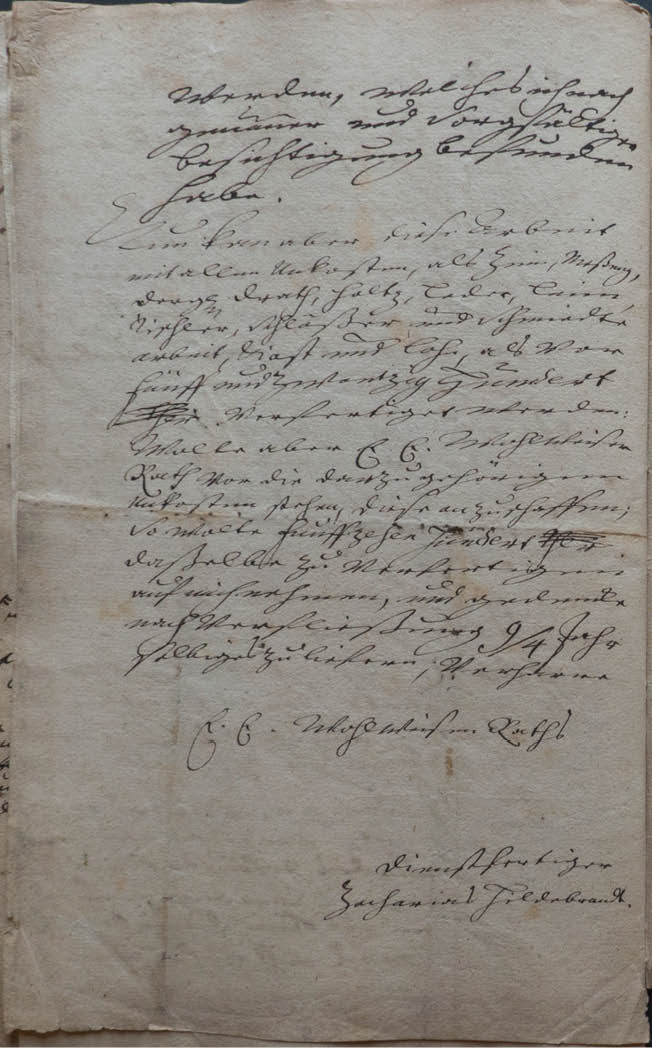 Werden, Welches ich nach
genauer und Sorgfältiger
besichtigung befunden
habe.
Nun kan aber diese Arbeit
mit allen Unkosten, als Zinn, Meßing,
Drath, Holtz, Leder, Leim,
Tischler, Schlößer, und Schmiede
arbeit, Kost und Lohn, als Vor
fünff und zwantzig Hundert
thlr Verfertiget werden.
Wolle aber E. E. Wohlweiser
Rath vor die darzu gehörigen
Unkosten stehen, diese anzuschaffen,
So wolte fünffzehen Hundert thlr
daßelbe zu Verfertigen
auf mich nehmen, und gedencke
nach Verfließung 9/4 Jahr
selbiges zu liefern, Verharre
E. E. Wohlweisen Raths
Dienstfertiger
Zacharias Hildebrandt.